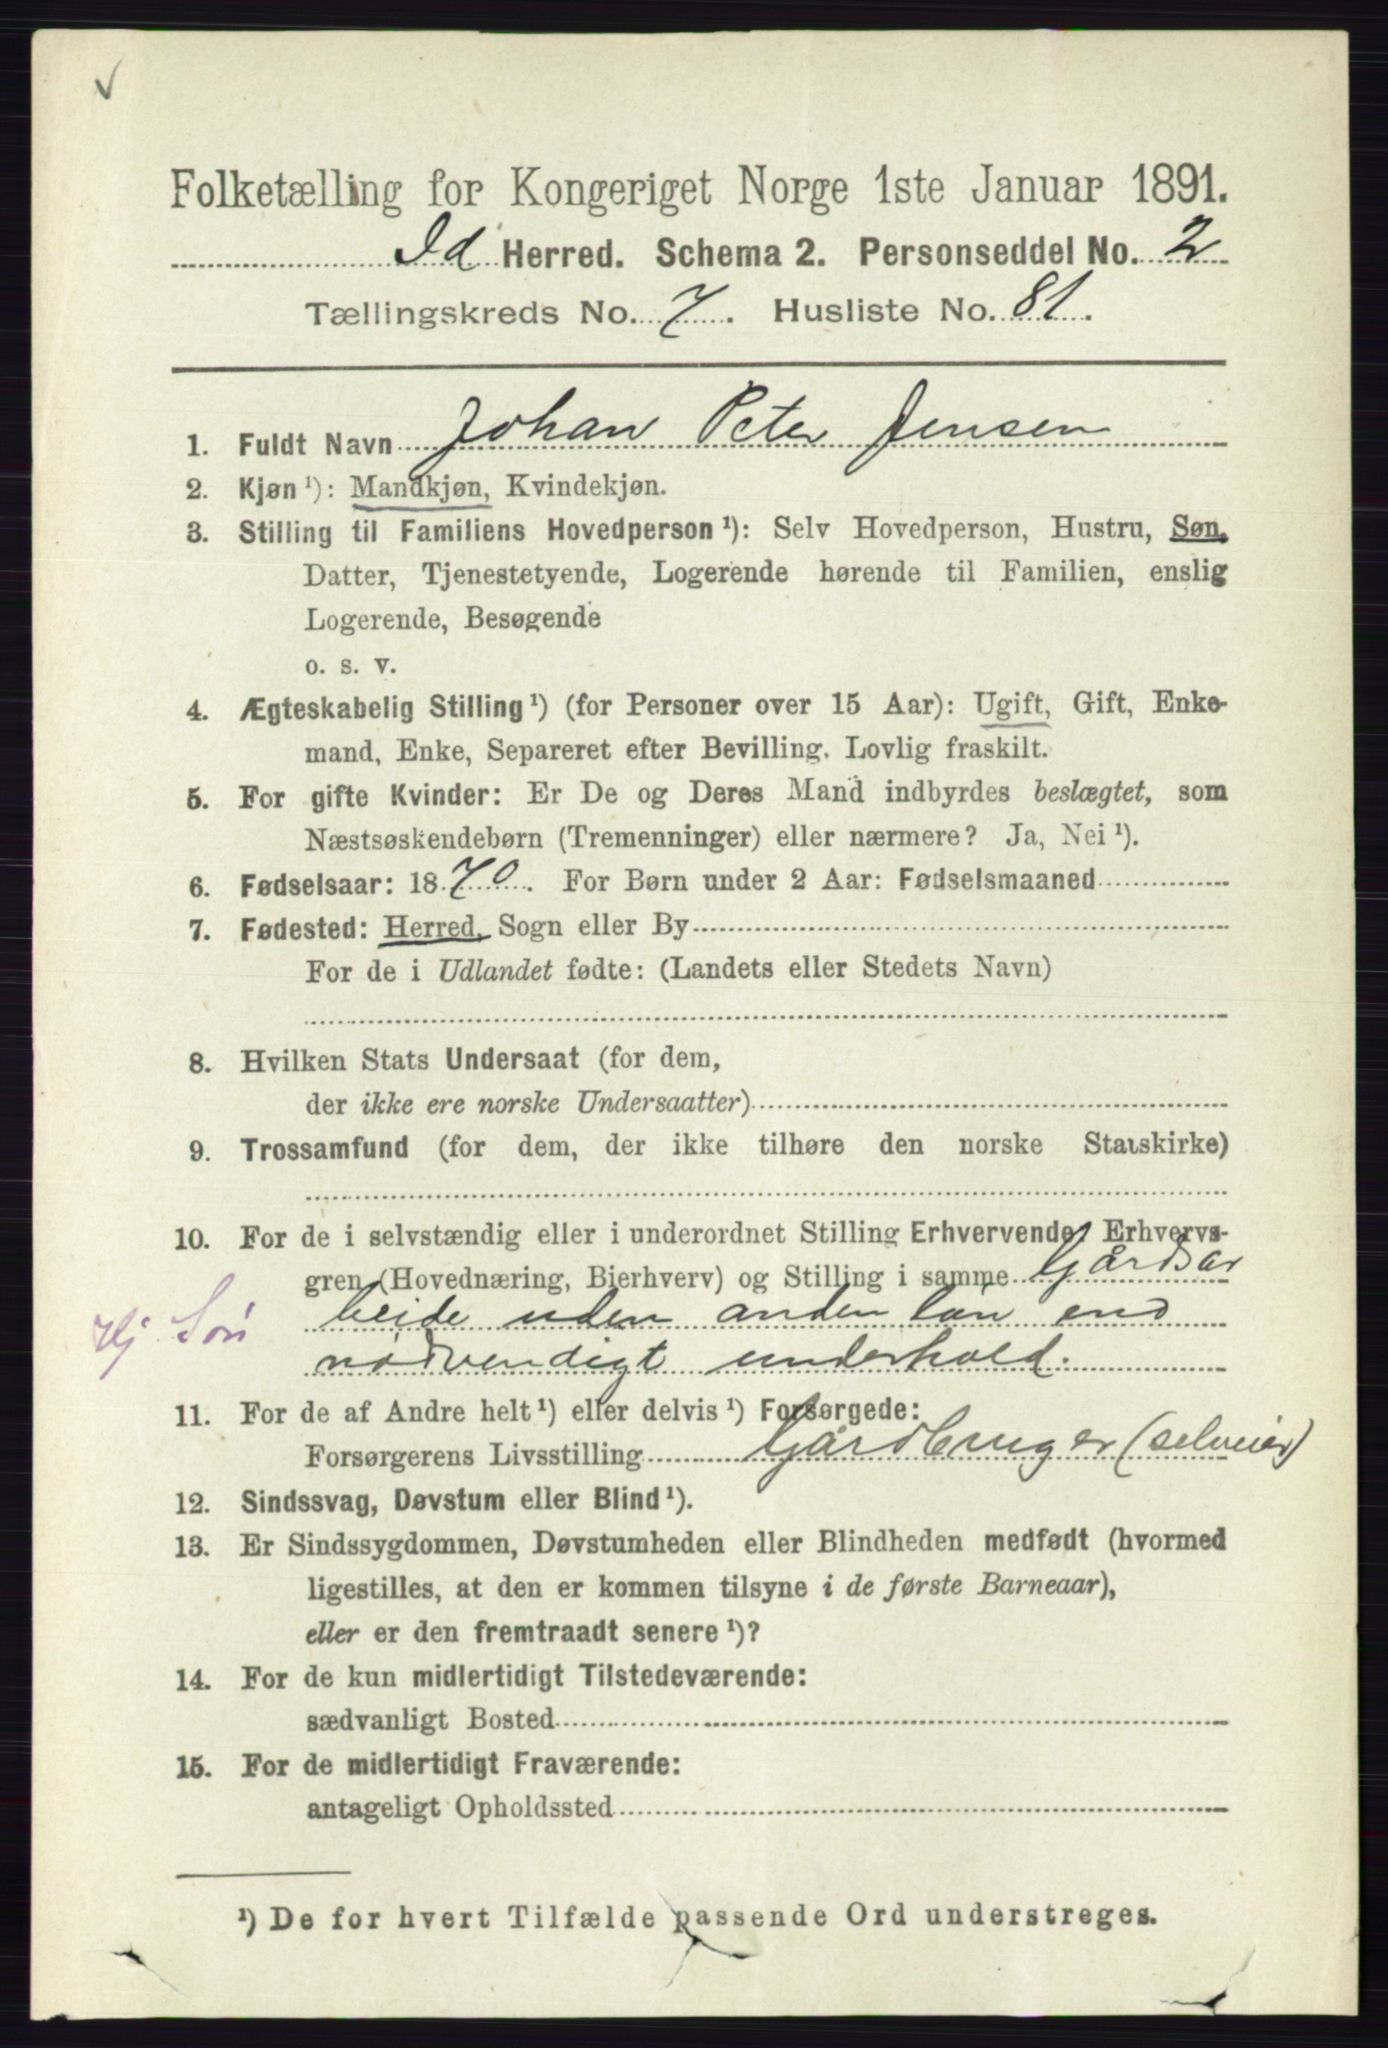 Folketælling for Kongeriget Norge 1ste Januar 1891.
Id Herred. Schema 2. Personseddel No. 2
Tællingskreds No. 7. Husliste No. 81.
1. Fuldt Navn Johan Peter Jensen
2. Kjøn ¹): Mandkjøn, Kvindekjøn.
3. Stilling til Familiens Hovedperson ¹): Selv Hovedperson, Hustru, Søn,
Datter, Tjenestetyende, Logerende hørende til Familien, enslig
Logerende, Besøgende
o. s. v.
4. Ægteskabelig Stilling ¹) (for Personer over 15 Aar): Ugift, Gift, Enke-
mand, Enke, Separeret efter Bevilling. Lovlig fraskilt.
5. For gifte Kvinder: Er De og Deres Mand indbyrdes beslægtet, som
Næstsøskendebørn (Tremenninger) eller nærmere? Ja, Nei ¹).
6. Fødselsaar: 1870. For Børn under 2 Aar: Fødselsmaaned
7. Fødested: Herred, Sogn eller By
For de i Udlandet fødte: (Landets eller Stedets Navn)
8. Hvilken Stats Undersaat (for dem,
der ikke ere norske Undersaatter)
9. Trossamfund (for dem, der ikke tilhøre den norske Statskirke)
10. For de i selvstændig eller i underordnet Stilling Erhvervende, Erhvervs-
gren (Hovednæring, Bierhverv) og Stilling i samme Gårdsar
beide uden anden løn end
Hj. Søn
nødvendigt underhold.
11. For de af Andre helt ¹) eller delvis ¹) Forsørgede:
Forsørgerens Livsstilling Gårdbruger (selveier)
12. Sindssvag, Døvstum eller Blind ¹).
13. Er Sindssygdommen, Døvstumheden eller Blindheden medfødt (hvormed
ligestilles, at den er kommen tilsyne i de første Barneaar),
eller er den fremtraadt senere ¹)?
14. For de kun midlertidigt Tilstedeværende:
sædvanligt Bosted
15. For de midlertidigt Fraværende:
antageligt Opholdssted
¹) De for hvert Tilfælde passende Ord understreges.